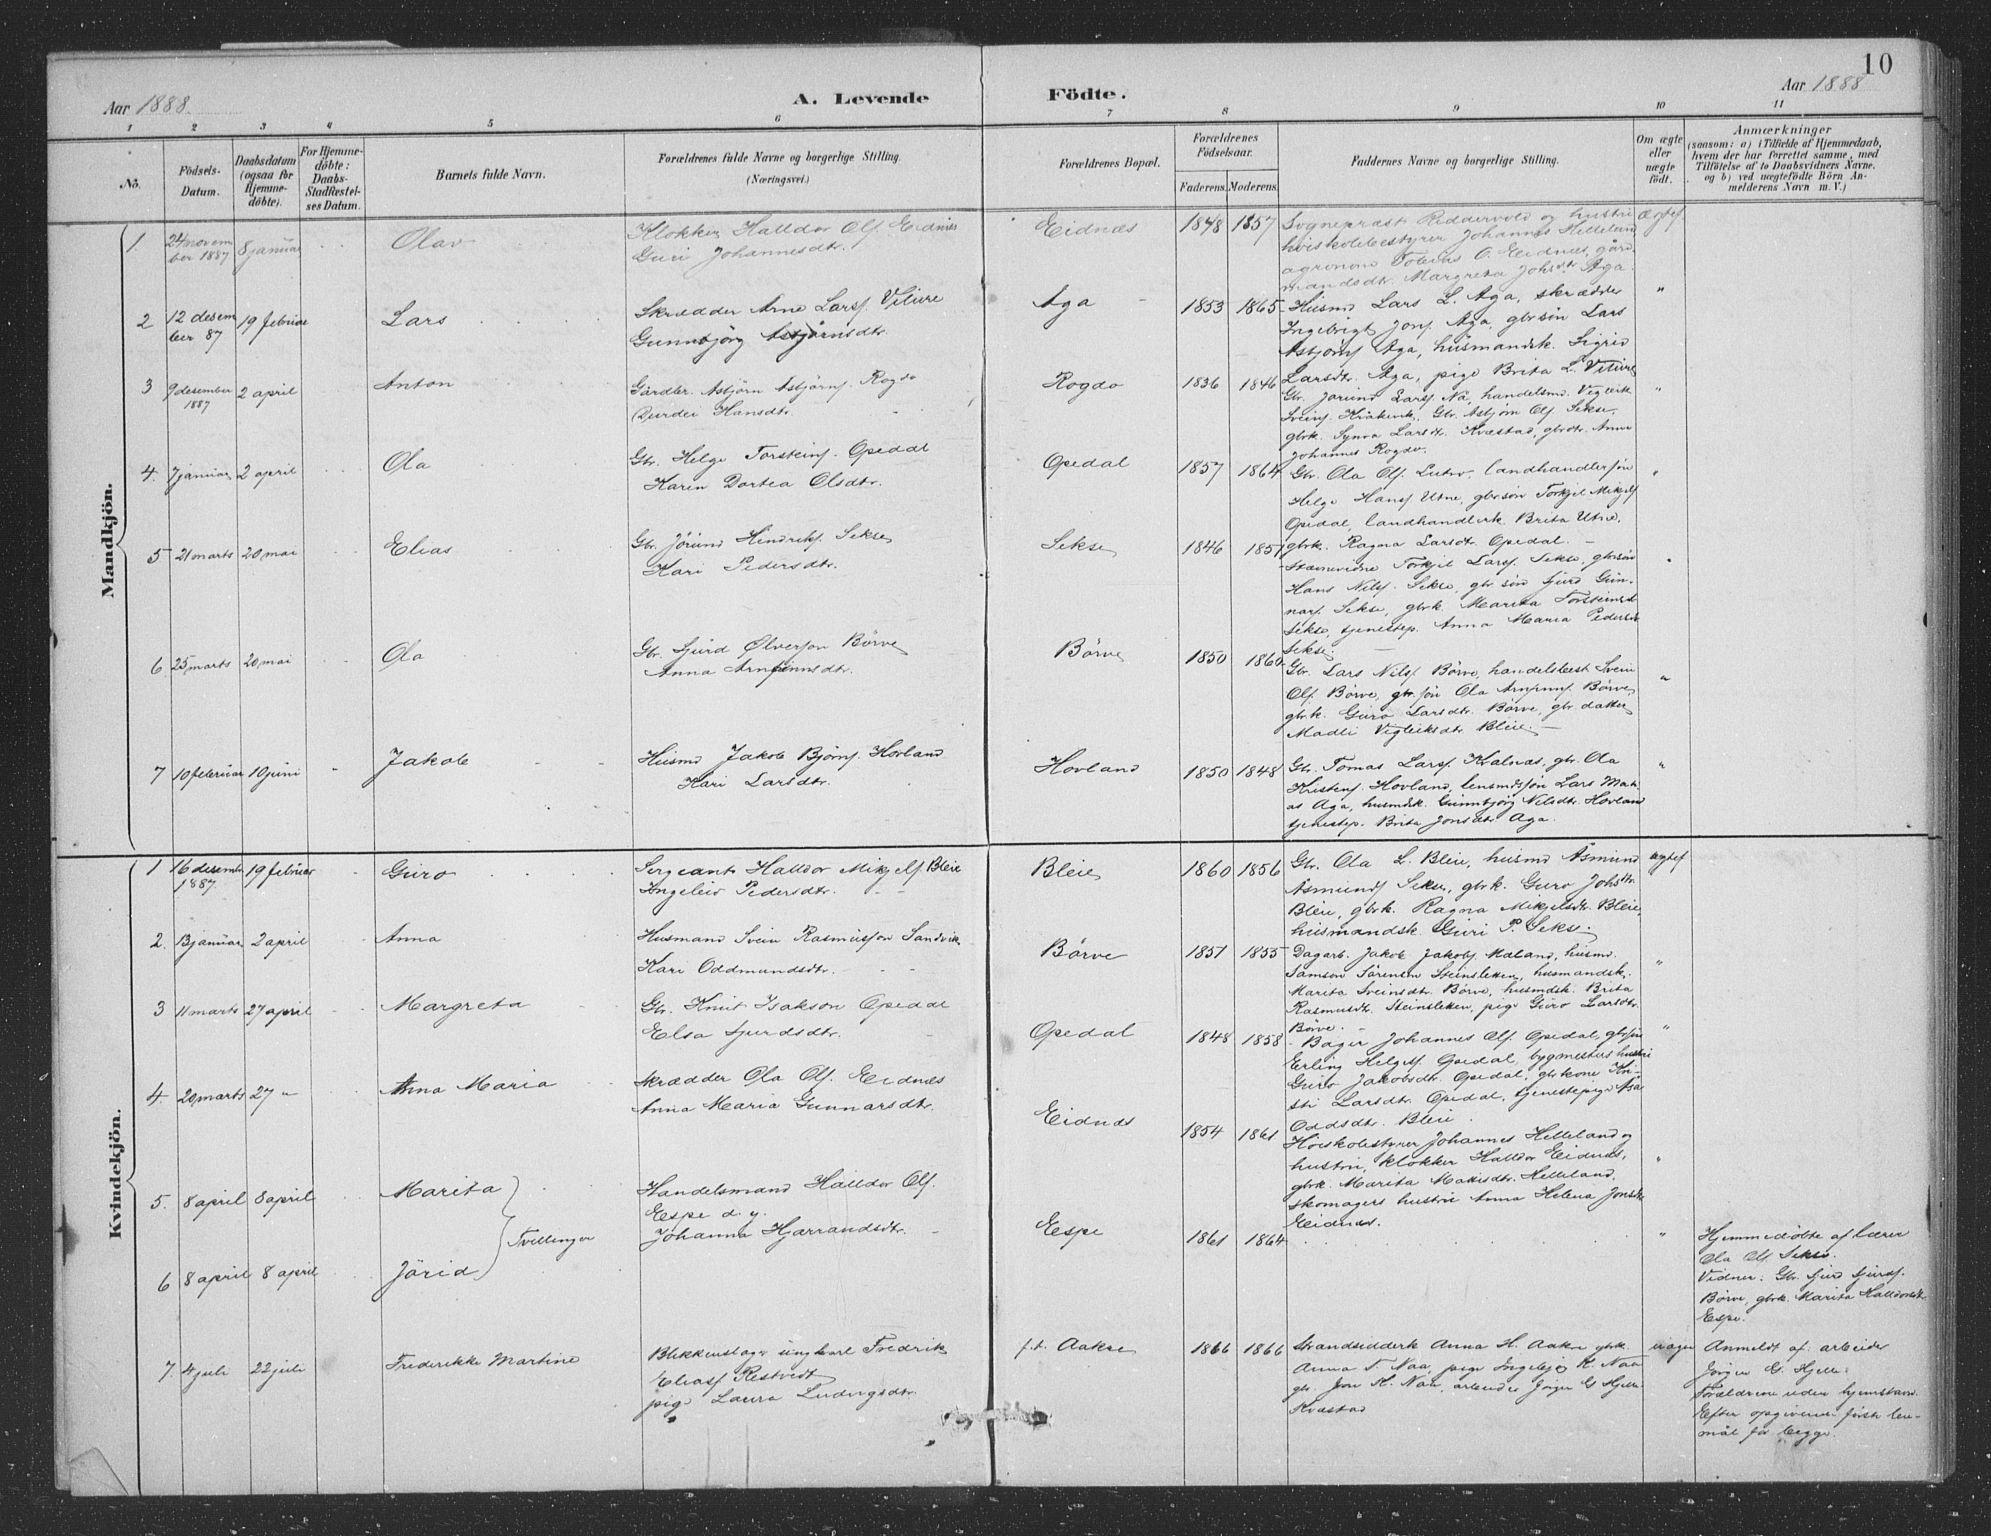 10
Aar 1888. A. Levende Födte. Aar 1888
1 2 3 4 5 6 7 8 9 10 11
No.
Födsels-
Datum.
Daabsdatum
(ogsaa for
Hjemme-
döbte).
For Hjemme-
döbte:
Daabs-
Stadfæstel-
ses Datum.
Barnets fulde Navn.
Forældrenes fulde Navne og borgerlige Stilling.
(Næringsvei.)
Forældrenes Bopæl.
Forældrenes
Födselsaar.
Faderens. Moderens.
Faddernes Navne og borgerlige Stilling.
Om ægte
eller
uægte
födt.
Anmærkninger
(saasom: a) i Tilfælde af Hjemmedaab,
hvem der har forrettet samme, med
Tilföielse af to Daabsvidners Navne.
og b) ved uægtefödte Börn An-
melderens Navn m. V.)
Mandkjön.
1 24 novem
ber 1887 8 januar Olav
Klokker Halldor Olf. Eidnes
Guri Johannesdtr.
Eidnæs 1848 1857
Sogneprest Riddervold og hustru
höiskolebestyrer Johannes Helleland
agronom O. Eidnes, gård
mandsdt. Margreta Johsdt. Aga.
ægtef
2 12 desem
ber 87 19 februar Lars
Skrædder Arne Larsf. Vilure
Gunnbjörg Asbjörnsdtr.
Aga 1853 1865
Husmd Lars L. Aga, skrædder
Ingebrigt Jonf. Aga, gbrsön Lars
Asbjörnf. Aga, husmandsk. Sigrid
Larsdtr. Aga, pige Brita L. Vilure
"
3 9 desember
1887 2 april Anton
Gårdbr. Asbjörn Asbjörnf. Rogdo
Durdei Hansdtr.
Rogdo 1836 1846
Gbr. Jörund Larsf. Nå, handelsmd. Vigleik
Sveinf. Kråkevik, Gbr. Asbjörn Olf. Sekse,
gbrk. Synva Larsdtr. Kvæstad, gbrdtr. Anna
Johannes Rogdo.
"
4. 7 januar 2 april Ola
Gbr. Helge Torsteinf. Opedal
Karen Dortea Olsdtr.
Opedal 1857 1864
Gbr. Ola Olf. Lutro, landhandlersön
Helge Hansf. Utne, gbrsön Torkjel Mikjelf
Opedal, landhandlerk Brita Utne,
gbrk. Ragna Larsdtr Opedal.
"
5 21 marts 20 mai Elias
Gbr. Jörund Hendrikf. Sekse
Kari Pedersdtr.
Sekse 1846 1851
Stævnevidne Torkjil Larsf. Sekse, gbrsön
Hans Nilsf. Sekse, gbrsön Sjurd Gun-
narf. Sekse, gbrk. Marita Torsteinsdt
Sekse, tjenestep. Anna Maria Pedersdt
Sekse.
"
6 25 marts 20 mai Ola
Gbr. Sjurd Ølverson Börve
Anna Arnfinnsdtr.
Börve 1850 1860
Gbr. Lars Nilsf. Börve, handelsbest Svein
Olf. Börve, gbr.sön Ola Arnfinnf. Börve,
gbrk. Guro Larsdtr. Börve, gbr. datter
Madli Vigleiksdtr Bleie.
"
7 10 februar 10 juni Jakob
Husmd Jakob Bjönf. Hovland
Kari Larsdtr.
Hovland 1850 1848
Gbr. Tomas Larsf. Kvalnæs, gbr. Ola
Kristenf. Hovland, lensmdsön Lars Mati-
as Aga, husmdk. Gunnbjörg Nilsdtr. Hovland
tjenestep. Brita Jonsdtr Aga.
"
Kvindekjön.
1 16 desemb
1887. 19 februar Guro
Sergeant Halldor Mikjelf Bleie
Ingeleiv Pedersdtr.
Bleie 1860 1856
Gbr. Ola L. Bleie, husmd Åsmund
Åsmundf Sekse, gbrk. Guro Johsdtr
Bleie, gbrk. Ragna Mikjelsdtr. Bleie,
husmandsk Guri P. Sekse.
ægtef
2. 13 januar 2 april Anna
Husmand Svein Rasmussøn Sandvik
Kari Oddmundsdtr.
Börve 1851 1855
Dagarb. Jakob Jakobf. Maland, husmd.
Samson Sörensen Steinsleten, husmandsk.
Marita Sveinsdtr Börve, husmdsk. Brita
Rasmusdtr. Steinsleten, pige Guro Larsdtr.
Börve.
"
3 11 marts 27 april Margreta
Gbr. Knut Isakson Opedal
Elsa Sjurdsdtr.
Opedal 1848 1858
Bager Johannes Olf. Opedal, gbrsön
Erling Helgef Opedal, bygmesters hustru
Guro Jakobsdtr. Opedal, gbrkone Kri-
sti Larsdtr. Opedal, tjenestepige Åsa
Oddsdtr. Bleie.
"
4. 20 marts 27 " Anna Maria
Skrædder Ola Olf. Eidnæs
Anna Maria Gunnarsdtr.
Eidnæs 1854 1861
Höiskolestyrer Johannes Helleland og
hustru, klokker Halldor Eidnes,
gbrk. Marita Matisdtr. Helleland,
skomagers hustru Anna Helena Jonsdtr
Eidnes.
"
5. 8 april 8 april Marita
Tvillinger
Handelsmand Halldor Olf.
Espe d. y.
Johanna Hjarrandsdtr.
Espe 1861 1864
"
Hjemmedöbte af lærer
Ola Olf Sekse.
Vidner: Gbr. Sjurd Sjurdsf.
Börve, gbrk. Marita Halldorsdtr.
Espe.
6 8 april 8 april Jörid
7. 4 juli 22 juli Frederikke Martine
Blikkenslager ungkarl Fredrik
Eliasf Restvedt
pige Laura Ludvigsdtr.
f.t. Aakse 1866 1866
Strandsidderk Anna H. Aakse gbrk.
Anna T. Naa, pige Ingebjör K. Naa
gbr. Jon K. Naa, arbeider Jörgen G Hjelle
Kvæstad
uægte
Anmeldt af arbeider
Jörgen G. Hjelle.
Forældrene uden hjemstavn.
Efter opgivende første leie-
mål for begge.